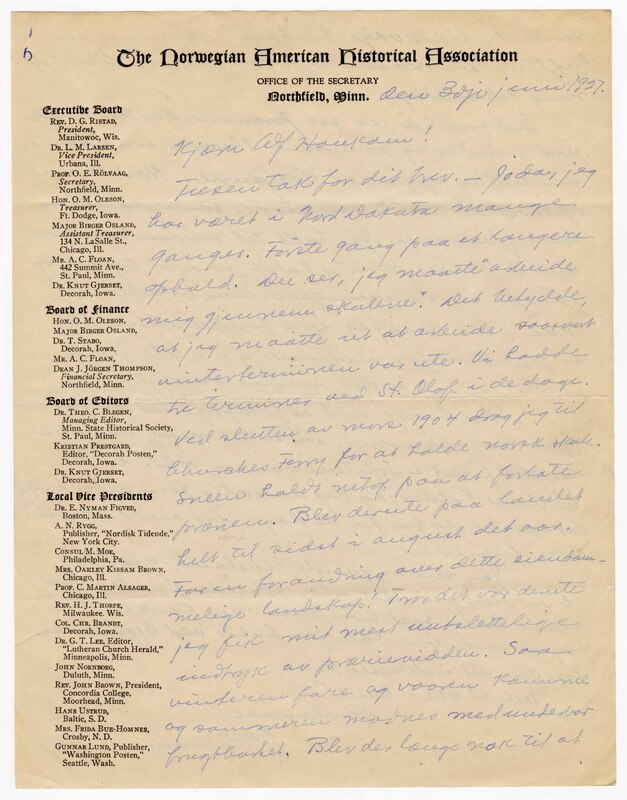 The Norwegian American Historical Association
OFFICE OF THE SECRETARY
Northfield, Minn.
den 3dje juni 1927.
Executive Board
REV. D. G. RISTAD,
President,
Manitowoc, Wis.
DR. L. M. LARSEN,
Vice President,
Urbana, Ill.
PROF. O. E. RÖLVAAG,
Secretary,
Northfield, Minn.
HON. O. M. OLESON,
Treasurer,
Ft. Dodge, Iowa.
MAJOR BIRGER OSLAND,
Assistant Treasurer,
134 N. LaSalle St.,
Chicago, Ill.
MR. A. C. FLOAN,
442 Summit Ave.,
St. Paul, Minn.
DR. KNUT GJERSET,
Decorah, Iowa.
Board of Finance
HON. O. M. OLESON,
MAJOR BIRGER OSLAND,
DR. T. STABO,
Decorah, Iowa.
MR. A. C. FLOAN,
DEAN J. JÖRGEN THOMPSON,
Financial Secretary,
Northfield, Minn.
Board of Editors
DR. THEO. C. BLEGEN,
Managing Editor,
Minn. State Historical Society,
St. Paul, Minn.
KRISTIAN PRESTGARD,
Editor, "Decorah Posten,"
Decorah, Iowa.
DR. KNUT GJERSET,
Decorah, Iowa.
Local Vice Presidents
DR. E. NYMAN FIGVED,
Boston, Mass.
A. N. RYGG,
Publisher, "Nordisk Tidende,"
New York City.
CONSUL M. MOE,
Philadelphia, Pa.
MRS. OAKLEY KISSAM BROWN,
Chicago, Ill.
PROF. C. MARTIN ALSAGER,
Chicago, Ill.
REV. H. J. THORPE,
Milwaukee, Wis.
COL. CHR. BRANDT,
Decorah, Iowa.
DR. G. T. LEE, Editor,
"Lutheran Church Herald,"
Minneapolis, Minn.
JOHN NORNBORG,
Duluth, Minn.
REV. JOHN BROWN, President,
Concordia College,
Moorhead, Minn.
HANS USTRUD,
Baltic, S. D.
MRS. FRIDA BUE-HOMNES,
Crosby, N. D.
GUNNAR LUND, Publisher,
"Washington Posten,"
Seattle, Wash.
Kjære Alf Houkom!
Tusen tak for dit brev. — Joda, jeg
har været i Nord Dakota mange
ganger. Förste gang paa et længere
ophold. Du ser, jeg maatte "arbeide
mig gjennem skolene". Det betydde,
at jeg maatte ut at arbeide saasnart
vinterterminen var ute. Vi hadde
tre terminer ved St. Olaf i de dage.
Ved slutten av mars 1904 drog jeg til
Churches Ferry for at holde norsk skole.
Sneen holdt netop paa at forlate
prærien. Blev derute paa landet
helt til sidst i august det aar.
For en forandring over dette eiendom-
melige landskap! Tror det var derute
jeg fik mit mest uutslettelige
indtryk av prærievidden. Saa
vinteren fare og vaaren komme
og sommeren modnes med underbar
frugtbarhet. Blev der længe nok til at